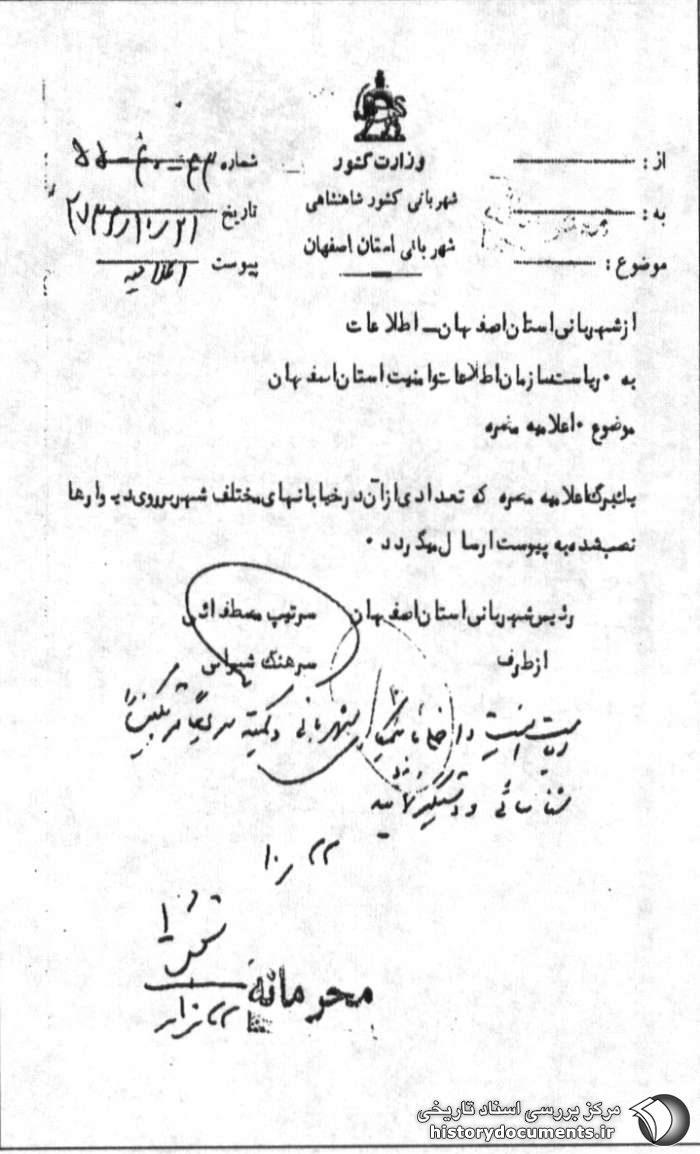 وزارت کشور
شهربانی کشور شاهنشاهی
شهربانی استان اصفهان
از :
به :
موضوع :
شماره
تاریخ ۲۵۳۶/۱۰/۲۱
پیوست اعلامیه
از شهربانی استان اصفهان – اطلاعات
به ۰ ریاست سازمان اطلاعات و امنیت استان اصفهان
موضوع ۰ اعلامیه مضره
یک برگ اعلامیه مضره که تعدادی از آن در خیابانهای مختلف شهر بر روی دیوارها
نصب شده به پیوست ارسال میگردد ۰
رئیس شهربانی استان اصفهان سرتیپ مصطفائی
از طرف سرهنگ
ریاست امنیت داخلی با شهربانی و کمیته سریعا مرتکبین را
شناسائی و دستگیر نمایند
۱۰/۲۲
محرمانه
مرکز بررسی اسناد تاریخی
historydocuments.ir